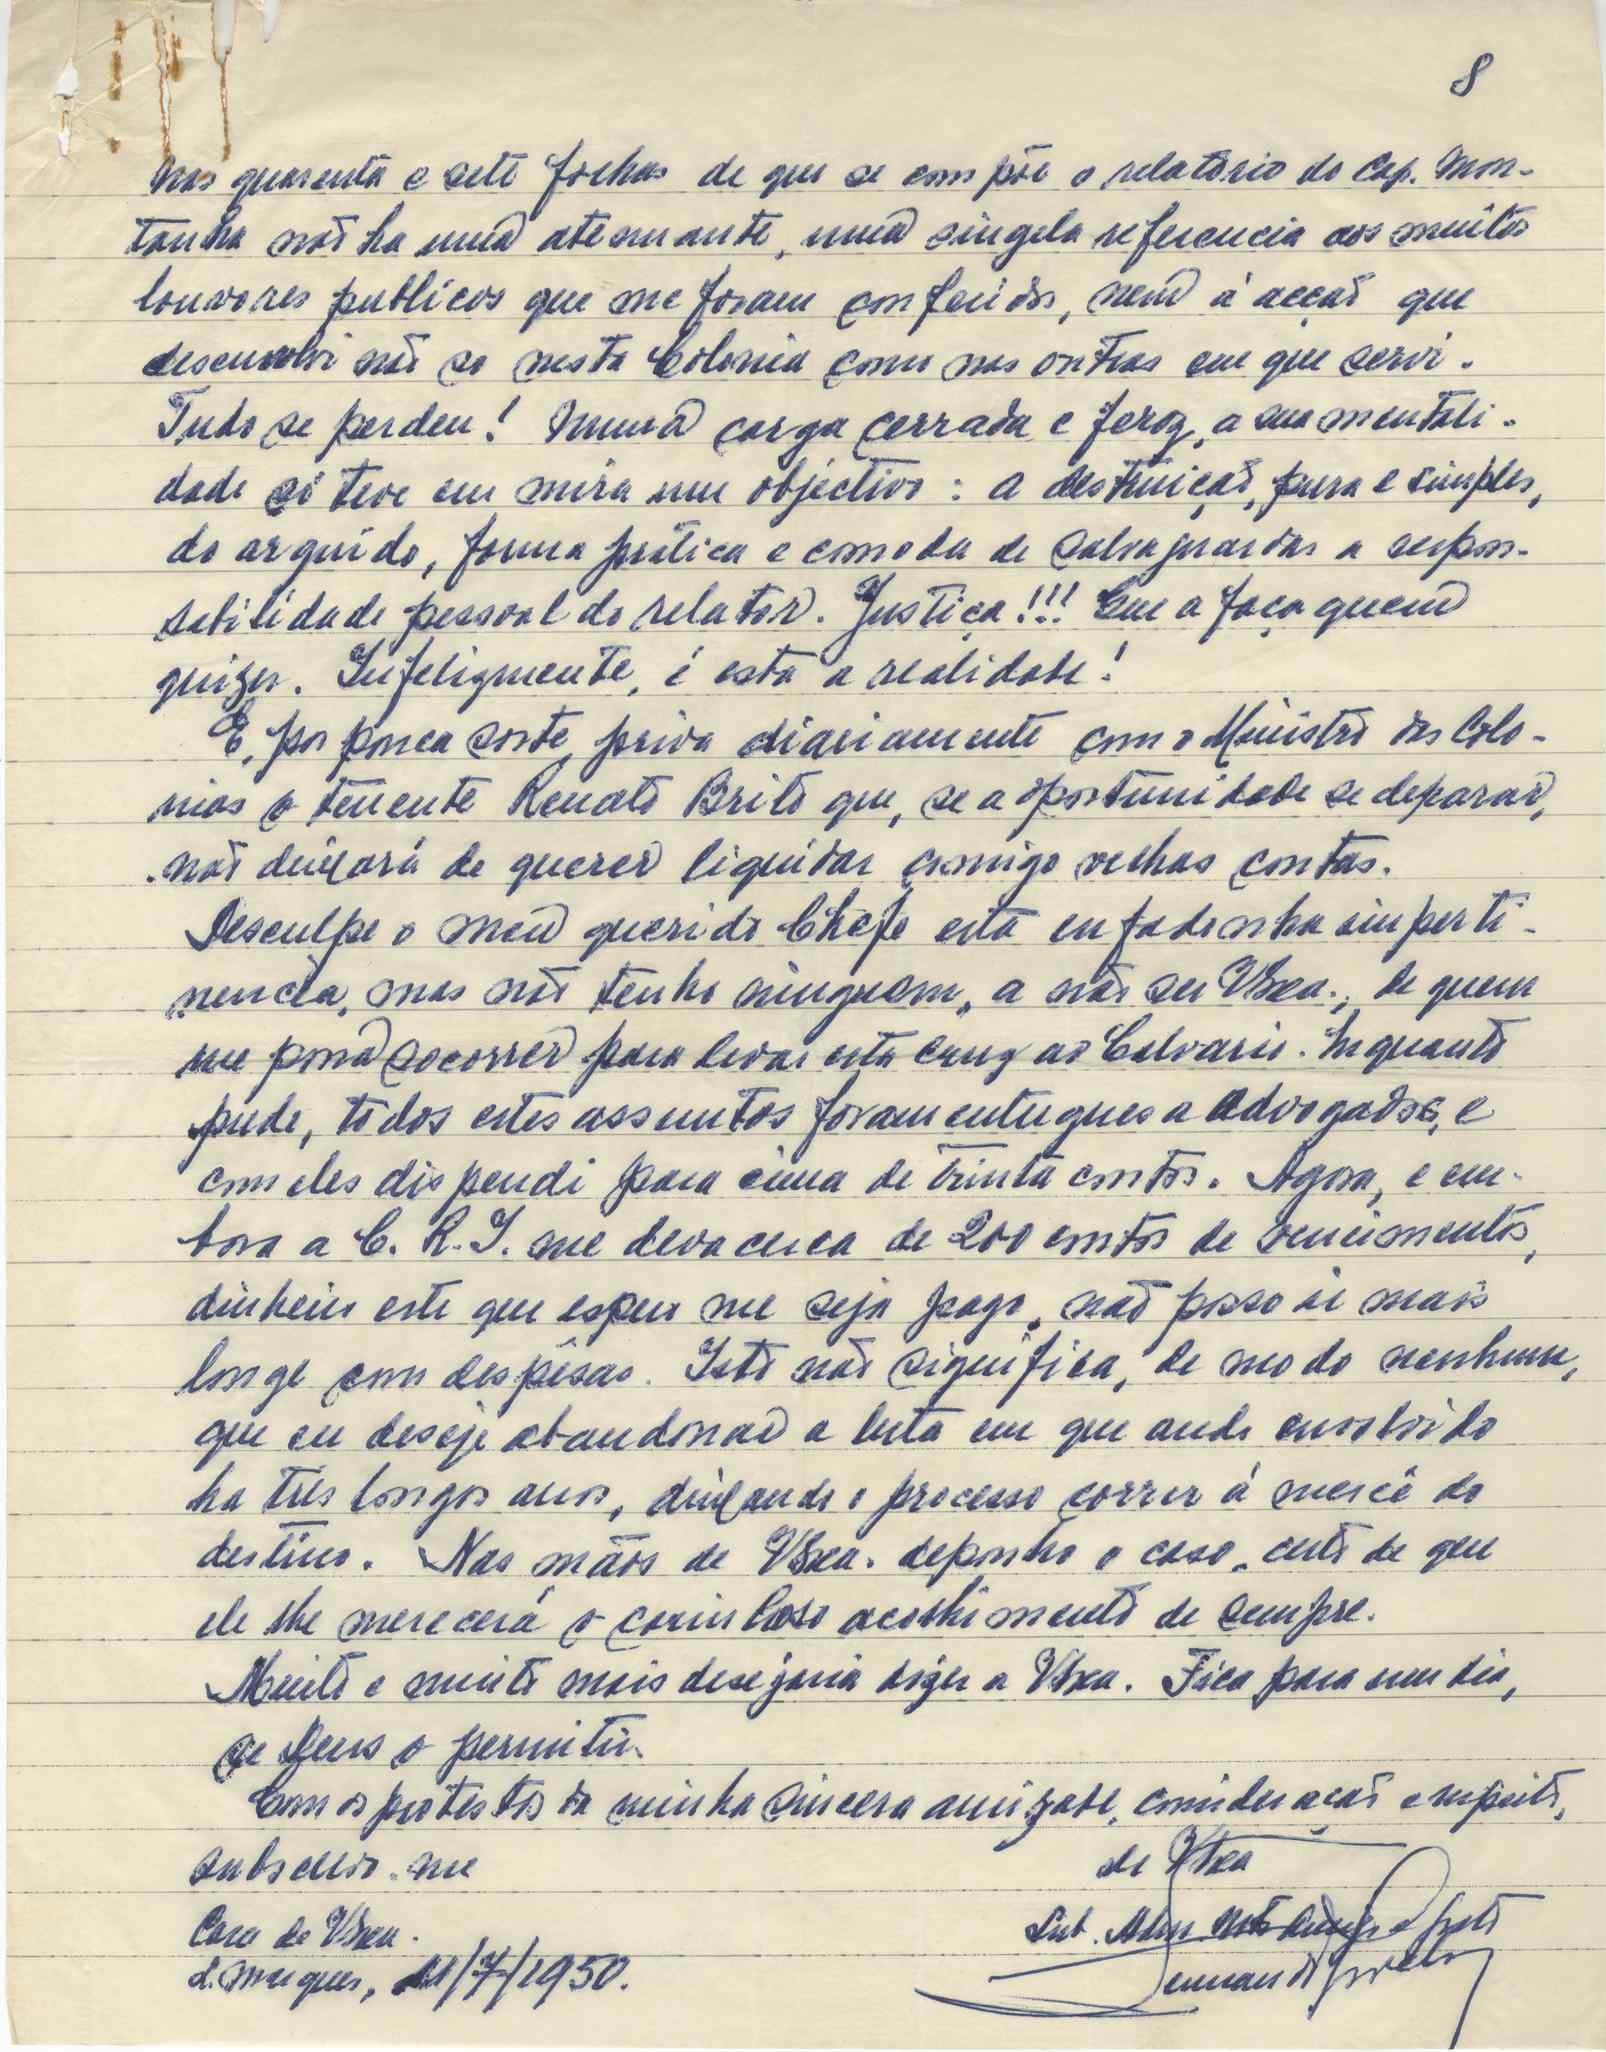 8
Nas quarenta e sete folhas de que se compõe o relatório do Cap. Mon-
tanha não ha uma atenuante, uma singela referencia aos muitos
louvores publicos que me foram conferidos, nem á acção que
desenvolvi não so nesta Colonia como nas outras em que servi.
Tudo se perdeu! Numa carga cerrada e feroz, a sua mentali-
dade só teve em mira um objectivo: a destruição, pura e simples,
do arguido, forma prática e comoda de salvaguardar a respon-
sabilidade pessoal do relator. Justiça!!! Que a faça quem
quizer. Infelizmente, é esta a realidade!
E, por pouca sorte, priva diariamente com o Ministro das Colo-
nias o tenente Renato Brito que, se a oportunidade se deparar,
não deixará de querer liquidar comigo velhas contas.
Desculpe o meu querido Chefe esta enfadonha imperti-
nencia, mas não tenho ninguem, a não ser VExa., de quem
me possa socorrer para levar esta cruz ao Calvario. Enquanto
pude, todos estes assuntos foram entregues a advogados, e
com eles dispendi para cima de trinta contos. Agora, e em-
bora a C. R. I. me deva cerca de 200 contos de vencimentos,
dinheiro este que espero me seja pago, não posso ir mais
longe com despêsas. Isto não significa, de modo nenhum,
que eu deseje abandonar a luta em que ando envolvido
ha três longos anos, deixando o processo correr á mercê do
destino. Nas mãos de VExa. deponho o caso, certo de que
ele lhe merecerá o carinhoso acolhimento de sempre.
Muito e muito mais desejaria dizer a VExa. Fica para um dia,
se Deus o permitir.
Com os protestos da minha sincera amizade, consideração e respeito,
subscrevo-me
de VExa
Casa de VExa.
L. Marques, 21/7/1950.